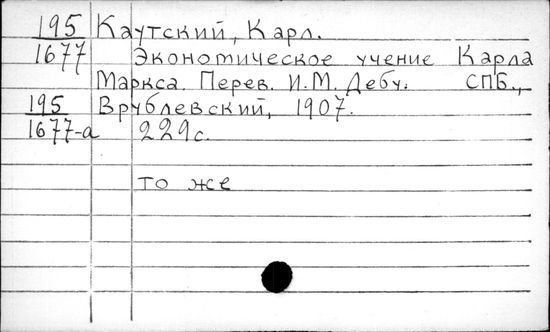 195 Каутский, Карл.
1677 Экономическое учение Карла
Маркса. Перев. И.М. Дебу. СПб.,
195 Врублевский, 1907.
1677-а 229 с.
то же